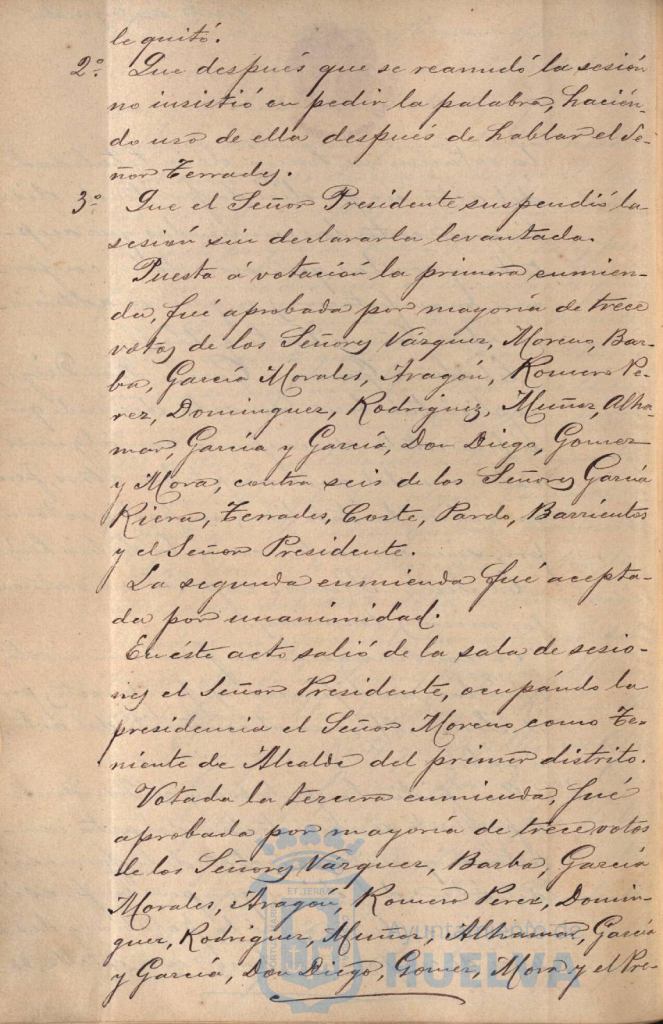 le quitó.
2º Que después que se reanudó la sesión
no insistió en pedir la palabra, hacién-
do uso de ella después de hablar el Se-
ñor Terrades.
3º Que el Señor Presidente suspendió la
sesión sin declararla levantada.
Puesta á votación la primera enmien-
da, fué aprobada por mayoría de trece
votos de los Señores Vázquez, Moreno, Bar-
ba, García Morales, Aragón, Romero Pe-
rez, Dominguez, Rodriguez, Muñoz, Alha-
mar, García y García, Don Diego, Gomez
y Mora, contra seis de los Señores García
Riera, Terrades, Coste, Pardo, Barrientos
y el Señor Presidente.
La segunda enmienda fué acepta-
da por unanimidad.
En éste acto salió de la sala de sesio-
nes el Señor Presidente, ocupándo la
presidencia el Señor Moreno como Te-
niente de Alcalde del primer distrito.
Votada la tercera enmienda, fué
aprobada por mayoría de trece votos
de los Señores Vázquez, Barba, García
Morales, Aragón, Romero Perez, Domin-
guez, Rodriguez, Muñoz, Alhamar, García
y García, Don Diego, Gomez, Mora y el Pre-
Ayuntamiento de
HUELVA